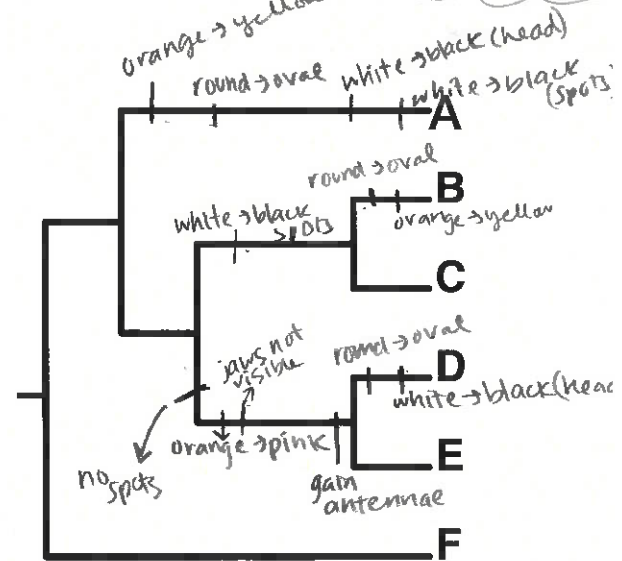 orange → yellow
round → oval
white → black (head)
white → black
(spots
A
round → oval
B
orange → yellow
white → black
spots
C
jaws not
visible
round → oval
D
white → black (head
orange → pink
no
spots
gain
antennae
E
F